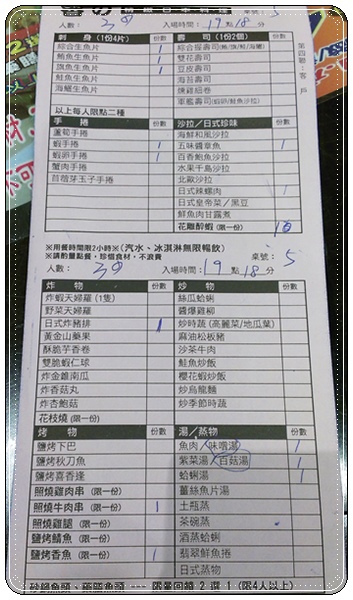 人數： 入場時間：19點18分
刺　身 (1份4片) 份數 壽　司 (1份2個) 份數
綜合生魚片 綜合握壽司
鮪魚生魚片 1 雙花壽司
旗魚生魚片 1 豆皮壽司
鮭魚生魚片 海苔壽司
海鱺生魚片 燒蝦細卷
軍艦壽司
以上每人限點二種
手　捲 份數 沙拉/日式珍味 份數
蘆筍手捲 海鮮和風沙拉
蝦手捲 1 五味醬章魚 1
蝦卵手捲 1 百香鮑魚沙拉
蟹肉手捲 水果千島沙拉
苜蓿芽玉子手捲 北歐沙拉
日式辣螺肉 1
日式皇帝菜/黑豆
鮮魚肉甘露煮
花雕醉蝦 (限一份)
第四聯：客戶
※用餐時間限2小時※(汽水、冰淇淋無限暢飲)
※請酌量點餐，珍惜食材，不浪費 桌號： 5
人數： 入場時間：19點18分
炸　物 份數 炒　物 份數
炸蝦天婦羅 (1隻) 絲瓜蛤蜊
野菜天婦羅 醬爆雞柳
日式炸豬排 1 炒時蔬 (高麗菜/地瓜葉)
黃金山藥果 麻油松板豬
酥脆芋香卷 沙茶牛肉
雙脆蝦仁球 鮭魚炒飯
炸金錐南瓜 櫻花蝦炒飯
炸香菇丸 炒烏龍麵
炸杏鮑菇 炒季節時蔬
花枝燒 (限一份)
烤　物 份數 湯/蒸物 份數
鹽烤下巴 魚肉/味噌湯 1
鹽烤秋刀魚 紫菜湯/百菇湯 1
鹽烤喜香逢 蛤蜊湯 1
照燒雞肉串 (限一份) 薑絲魚片湯
照燒牛肉串 (限一份) 1 土瓶蒸
照燒雞腿 (限一份) 茶碗蒸
鹽烤鯖魚 (限一份) 酒蒸蛤蜊
鹽烤香魚 (限一份) 1 翡翠鮮魚捲
日式蒸物